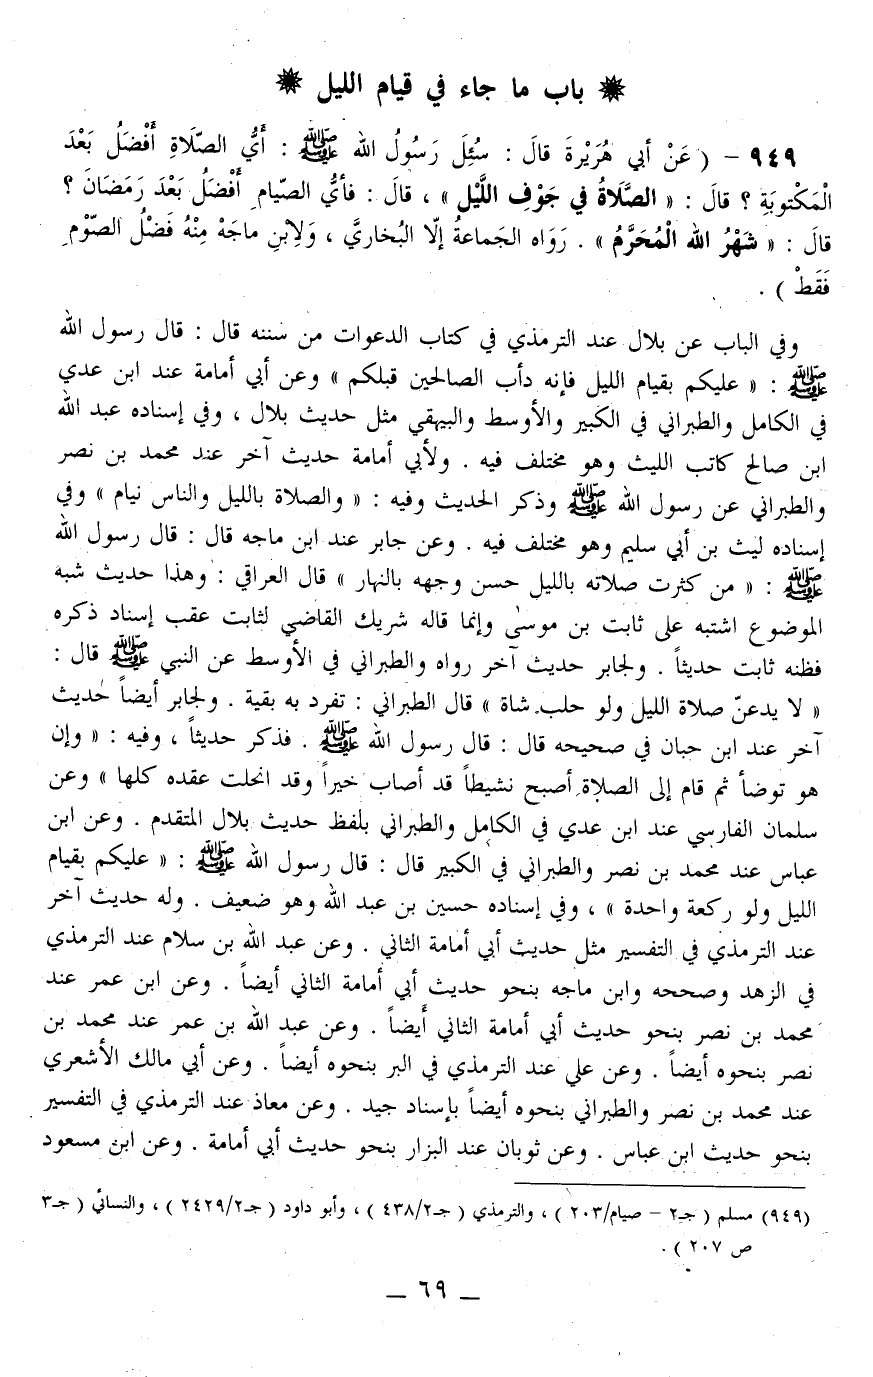 ❋ باب ما جاء في قيام الليل ❋
٩٤٩ - ( عَنْ أبي هُرَيْرةَ قالَ : سُئِلَ رَسُولُ الله ﷺ : أَيُّ الصّلَاةِ أَفْضَلُ بَعْدَ
الْمَكتوبَةِ ؟ قالَ : « الصَّلَاةُ في جَوْفِ اللَّيْلِ » ، قالَ : فأيُّ الصّيامِ أَفْضَلُ بَعْدَ رَمَضَانَ ؟
قالَ : « شَهْرُ الله الْمُحَرَّمُ » . رَوَاه الجَماعةُ إلّا البُخاريَّ ، وَلِابنِ ماجَهْ مِنْهُ فَضْلُ الصّوْمِ
فَقَطْ ) .
وفي الباب عن بلال عند الترمذي في كتاب الدعوات من سننه قال : قال رسول الله
ﷺ : « عليكم بقيام الليل فإنه دأب الصالحين قبلكم » وعن أبي أمامة عند ابن عدي
في الكامل والطبراني في الكبير والأوسط والبيهقي مثل حديث بلال ، وفي إسناده عبد الله
ابن صالح كاتب الليث وهو مختلف فيه . ولأبي أمامة حديث آخر عند محمد بن نصر
والطبراني عن رسول الله ﷺ وذكر الحديث وفيه : « والصلاة بالليل والناس نيام » وفي
إسناده ليث بن أبي سليم وهو مختلف فيه . وعن جابر عند ابن ماجه قال : قال رسول الله
ﷺ : « من كثرت صلاته بالليل حسن وجهه بالنهار » قال العراقي : وهذا حديث شبه
الموضوع اشتبه على ثابت بن موسىٰ وإنما قاله شريك القاضي لثابت عقب إسناد ذكره
فظنه ثابت حديثاً . ولجابر حديث آخر رواه والطبراني في الأوسط عن النبي ﷺ قال :
« لا يدعنّ صلاة الليل ولو حلب شاة » قال الطبراني : تفرد به بقية . ولجابر أيضاً حديث
آخر عند ابن حبان في صحيحه قال : قال رسول الله ﷺ . فذكر حديثاً ، وفيه : « وإن
هو توضأ ثم قام إلى الصلاة أصبح نشيطاً قد أصاب خيراً وقد انحلت عقده كلها » وعن
سلمان الفارسي عند ابن عدي في الكامل والطبراني بلفظ حديث بلال المتقدم . وعن ابن
عباس عند محمد بن نصر والطبراني في الكبير قال : قال رسول الله ﷺ : « عليكم بقيام
الليل ولو ركعة واحدة » ، وفي إسناده حسين بن عبد الله وهو ضعيف . وله حديث آخر
عند الترمذي في التفسير مثل حديث أبي أمامة الثاني . وعن عبد الله بن سلام عند الترمذي
في الزهد وصححه وابن ماجه بنحو حديث أبي أمامة الثاني أيضاً . وعن ابن عمر عند
محمد بن نصر بنحو حديث أبي أمامة الثاني أيضاً . وعن عبد الله بن عمر عند محمد بن
نصر بنحوه أيضاً . وعن علي عند الترمذي في البر بنحوه أيضاً . وعن أبي مالك الأشعري
عند محمد بن نصر والطبراني بنحوه أيضاً بإسناد جيد . وعن معاذ عند الترمذي في التفسير
بنحو حديث ابن عباس . وعن ثوبان عند البزار بنحو حديث أبي أمامة . وعن ابن مسعود
(٩٤٩) مسلم ( جـ٢ - صيام/٢٠٣ ) ، والترمذي ( جـ٤٣٨/٢ ) ، وأبو داود ( جـ٢٤٢٩/٢ ) ، والنسائي ( جـ٣
ص ٢٠٧ ) .
_ ٦٩ _